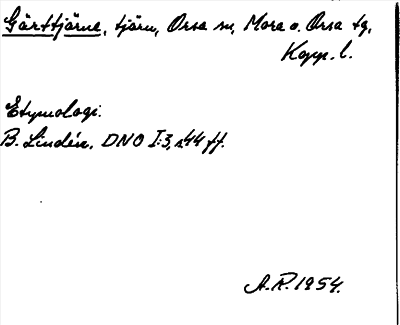 Gärttjärne, tjärn, Orsa sn, Mora o. Orsa tg,
Kopp. l.
Etymologi.
B. Lindén, DNO I:3, s 44 ff.
A. R. 1954.